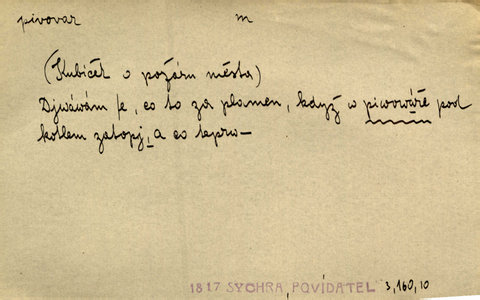 pivovar m
(Klubíčk o požáru města)
Djwáwám se, co to za plamen, když w piwowáře pod
kotlem zatopj, a co teprw—
1817 SYCHRA, POVÍDATEL 3,160,10